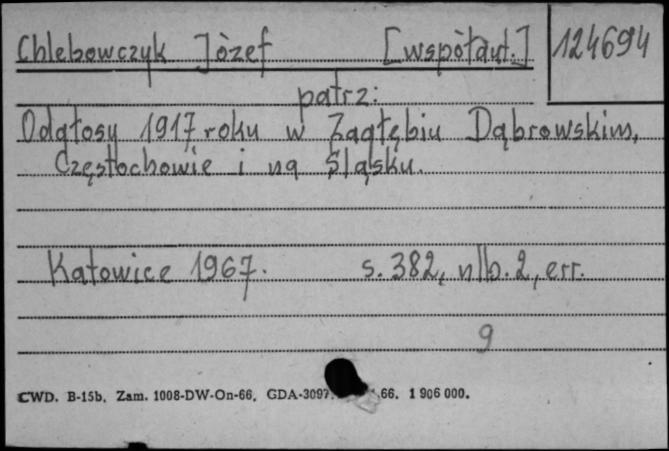 Chlebowczyk Józef [współaut.] 124694
patrz:
Odgłosy 1917 roku w Zagłębiu Dąbrowskim,
Częstochowie i na Śląsku.
Katowice 1967. s. 382, nlb. 2, err.
9
CWD. B-15b. Zam. 1008-DW-On-66. GDA-3097. 66. 1 906 000.